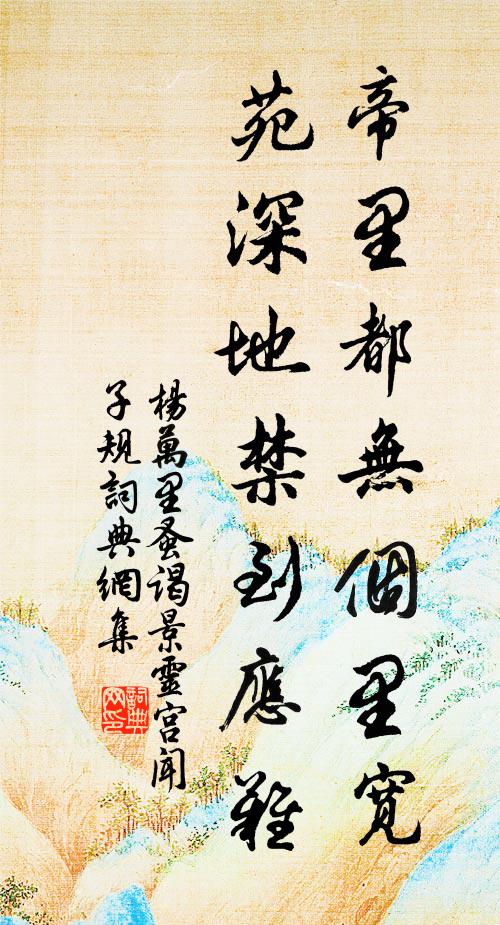 帝里都無個里寬
苑深地禁到應難
楊萬里蚤谒景靈宮聞
子規詞典網集
詞典
网印